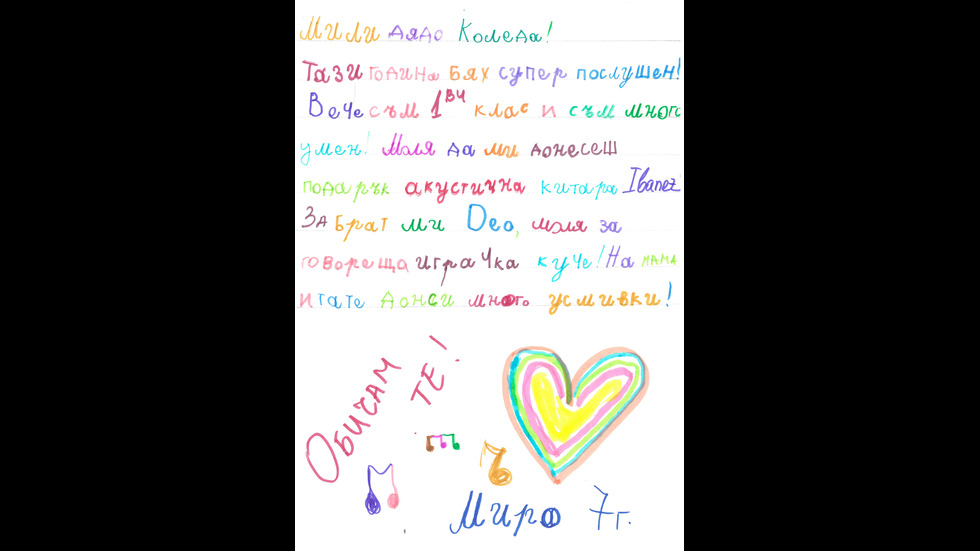 Мили дядо Коледа!
Тази година бях супер послушен!
Вече съм 1ви клас и съм много
умен! Моля да ми донесеш
подарък акустична китара Ibanez
За брат ми Део, моля за
говореща играчка куче! На мама
и тате донси много усмивки!
ОБИЧАМ
ТЕ!
Миро 7г.